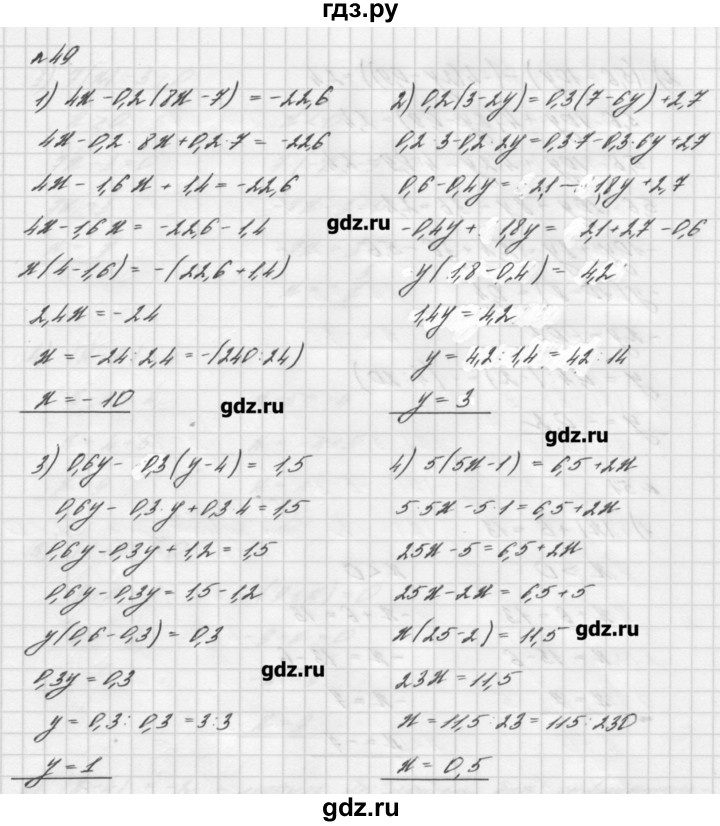 гдз.ру
№49
1) 4x - 0,2(8x - 7) = -22,6
4x - 0,2 · 8x + 0,2 · 7 = -22,6
4x - 1,6x + 1,4 = -22,6
4x - 1,6x = -22,6 - 1,4
x(4 - 1,6) = -(22,6 + 1,4)
2,4x = -24
x = -24 : 2,4 = -(240 : 24)
x = -10
2) 0,2(3 - 2y) = 0,3(7 - 6y) + 2,7
0,2 · 3 - 0,2 · 2y = 0,3 · 7 - 0,3 · 6y + 2,7
0,6 - 0,4y = 2,1 - 1,8y + 2,7
-0,4y + 1,8y = 2,1 + 2,7 - 0,6
y(1,8 - 0,4) = 4,2
1,4y = 4,2
y = 4,2 : 1,4 = 42 : 14
y = 3
gdz.ru
gdz.ru
gdz.ru
3) 0,6y - 0,3(y - 4) = 1,5
0,6y - 0,3 · y + 0,3 · 4 = 1,5
0,6y - 0,3y + 1,2 = 1,5
0,6y - 0,3y = 1,5 - 1,2
y(0,6 - 0,3) = 0,3
0,3y = 0,3
y = 0,3 : 0,3 = 3 : 3
y = 1
4) 5(5x - 1) = 6,5 + 2x
5 · 5x - 5 · 1 = 6,5 + 2x
25x - 5 = 6,5 + 2x
25x - 2x = 6,5 + 5
x(25 - 2) = 11,5
23x = 11,5
x = 11,5 : 23 = 115 : 230
x = 0,5
gdz.ru
gdz.ru
gdz.ru